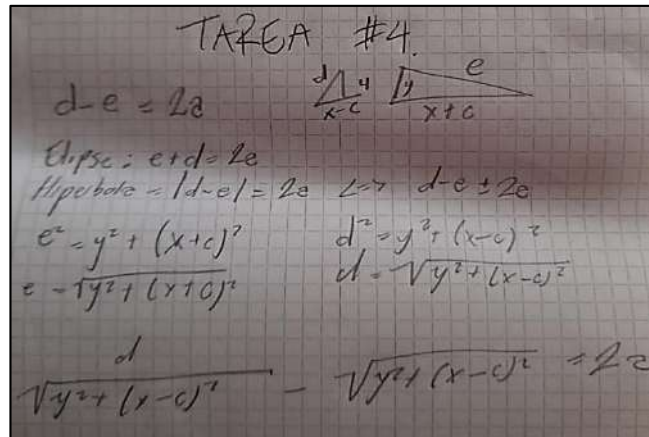 TAREA #4.
d-e = 2a
d y x-c
y e x+c
Elipse: e+d=2a
Hiperbola = |d-e| = 2a <=> d-e ± 2a
e² = y² + (x+c)²
d² = y² + (x-c)²
e = √y² + (x+c)²
d = √y² + (x-c)²
d
√y² + (x-c)² - √y² + (x-c)² = 2a